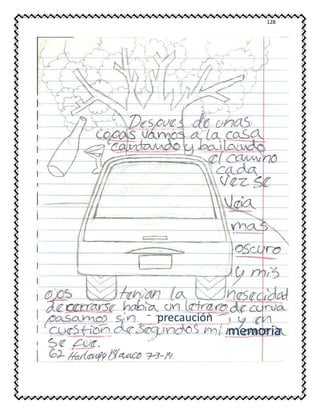 128
Despues de unas
copas vamos a la casa
cantando y bailando
el camino
cada
vez se
veia
mas
oscuro
y mis
ojos tenian la nesecidad
de cerrarse habia un letrero de curva
pasamos sin precaución y en
cuestion de segundos mi memoria
se fue.
62 Blanco 7-3-M